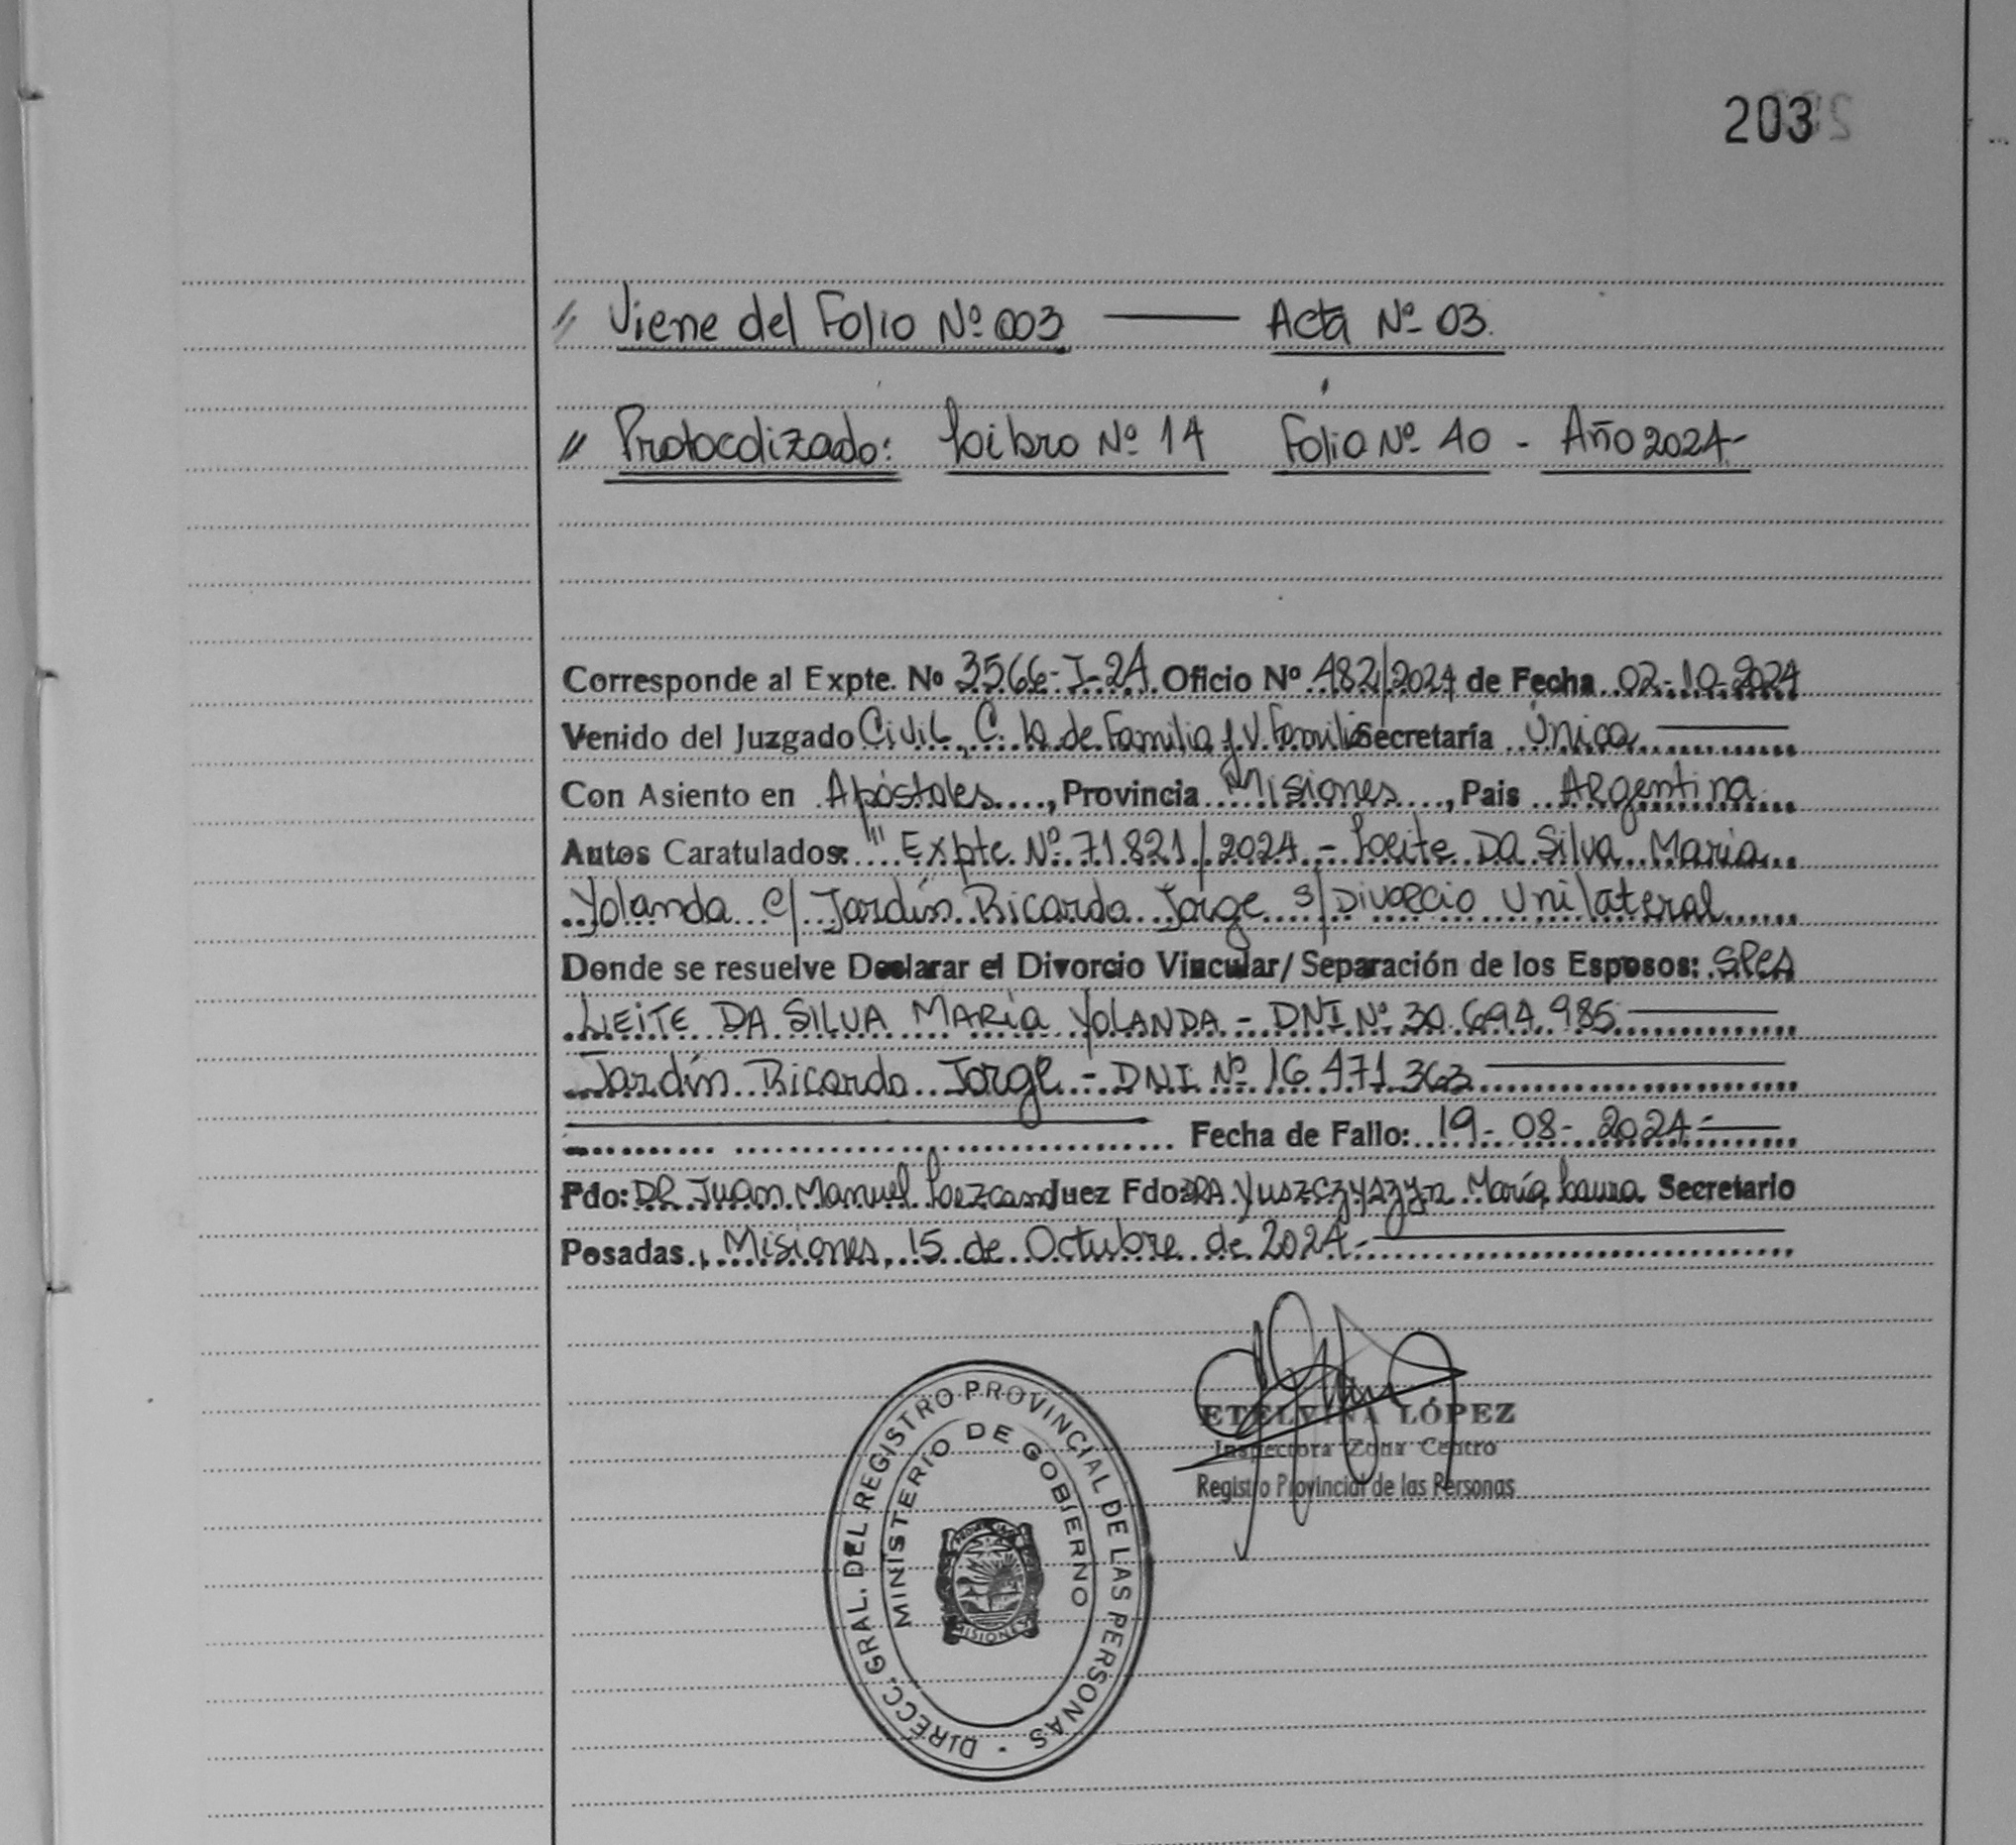 203
// Viene del Folio Nº 003 —— Acta Nº 03.
// Protocolizado: Libro Nº 14 Folio Nº 40 - Año 2024-
Corresponde al Expte. Nº 3566-I-24 Oficio Nº 482/2024 de Fecha 02-10-2024
Venido del Juzgado Civil, C. la de Familia y V. Familia Secretaría Única
Con Asiento en Apóstoles, Provincia Misiones, Pais Argentina
Autos Caratulados: "Expte. Nº 71.821/2024 - Leite Da Silva Maria
Yolanda c/ Jardín Ricardo Jorge s/ Divorcio Unilateral
Donde se resuelve Declarar el Divorcio Vincular/Separación de los Esposos: Sres
LEITE DA SILVA MARIA YOLANDA - DNI Nº 30.694.985
Jardín Ricardo Jorge - DNI Nº 16.471.363
Fecha de Fallo: 19-08-2024-
Fdo: DR Juan Manuel Juez Fdo: DRA. Yuszczyszyn María Laura Secretario
Posadas, Misiones, 15 de Octubre de 2024-
ETELVINA LÓPEZ
Inspectora Zona Centro
Registro Provincial de las Personas
DIRECC. GRAL. DEL REGISTRO PROVINCIAL DE LAS PERSONAS
MINISTERIO DE GOBIERNO
MISIONES